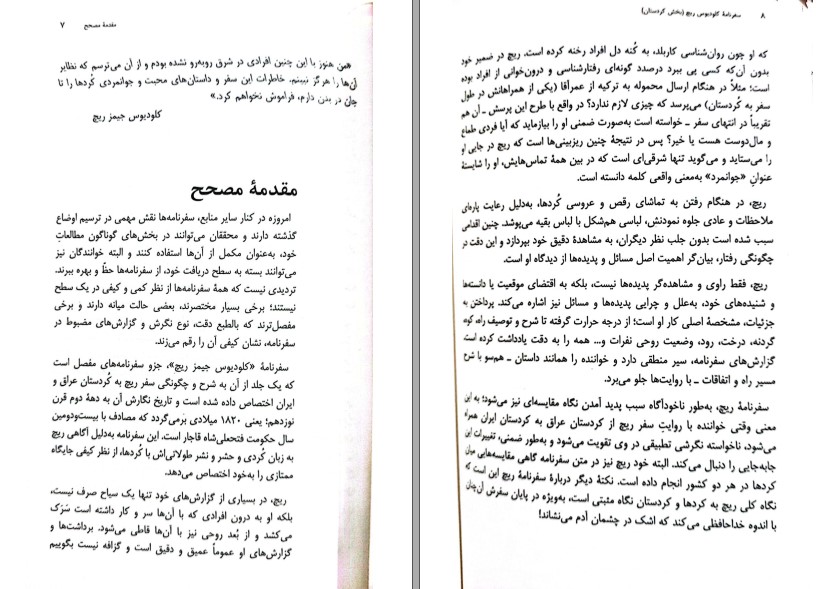 مقدمهٔ مصحح ۷
«من هنوز با این چنین افرادی در شرق روبه‌رو نشده بودم و از آن می‌ترسم که نظایر
آن‌ها را هرگز نبینم. خاطرات این سفر و داستان‌های محبت و جوانمردی کُردها را تا
جان در بدن دارم، فراموش نخواهم کرد.»
کلودیوس جیمز ریچ
مقدمهٔ مصحح
امروزه در کنار سایر منابع، سفرنامه‌ها نقش مهمی در ترسیم اوضاع
گذشته دارند و محققان می‌توانند در بخش‌های گوناگون مطالعاتِ
خود، به‌عنوان مکمل از آن‌ها استفاده کنند و البته خوانندگان نیز
می‌توانند بسته به سطح دریافت خود، از سفرنامه‌ها حظّ و بهره ببرند.
تردیدی نیست که همهٔ سفرنامه‌ها از نظر کمی و کیفی در یک سطح
نیستند؛ برخی بسیار مختصرند، بعضی حالت میانه دارند و برخی
مفصل‌ترند که بالطبع دقت، نوع نگرش و گزارش‌های مضبوط در
سفرنامه، نشان کیفی آن را رقم می‌زند.
سفرنامهٔ «کلودیوس جیمز ریچ»، جزو سفرنامه‌های مفصل است
که یک جلد از آن به شرح و چگونگی سفر ریچ به کُردستان عراق و
ایران اختصاص داده شده است و تاریخ نگارش آن به دههٔ دوم قرن
نوزدهم؛ یعنی ۱۸۲۰ میلادی برمی‌گردد که مصادف با بیست‌ودومین
سال حکومت فتحعلی‌شاه قاجار است. این سفرنامه به‌دلیل آگاهی ریچ
به زبان کُردی و حشر و نشر طولانی‌اش با کُردها، از نظر کیفی جایگاه
ممتازی را به‌خود اختصاص می‌دهد.
ریچ، در بسیاری از گزارش‌های خود تنها یک سیاح صرف نیست،
بلکه او به درون افرادی که با آن‌ها سر و کار داشته است سَرَک
می‌کشد و از بُعد روحی نیز با آن‌ها قاطی می‌شود. برداشت‌ها و
گزارش‌های او عموماً عمیق و دقیق است و گزافه نیست بگوییم
۸ سفرنامهٔ کلودیوس ریچ (بخش کردستان)
که او چون روان‌شناسی کاربلد، به کُنه دل افراد رخنه کرده است. ریچ در ضمیر خود
بدون آن‌که کسی پی ببرد درصدد گونه‌ای رفتارشناسی و درون‌خوانی از افراد بوده
است؛ مثلاً در هنگام ارسال محموله به ترکیه از عمرآقا (یکی از همراهانش در طول
سفر به کُردستان) می‌پرسد که چیزی لازم ندارد؟ در واقع با طرح این پرسش ـ آن هم
تقریباً در انتهای سفر ـ خواسته است به‌صورت ضمنی او را بیازماید که آیا فردی طماع
و مال‌دوست هست یا خیر؟ پس در نتیجهٔ چنین ریزبینی‌ها است که ریچ در جایی او
را می‌ستاید و می‌گوید تنها شرقی‌ای است که در بین همهٔ تماس‌هایش، او را شایستهٔ
عنوانِ «جوانمرد» به‌معنی واقعی کلمه دانسته است.
ریچ، در هنگام رفتن به تماشای رقص و عروسی کُردها، به‌دلیل رعایت پاره‌ای
ملاحظات و عادی جلوه نمودنش، لباسی هم‌شکل با لباس بقیه می‌پوشد. چنین اقدامی
سبب شده است بدون جلب نظر دیگران، به مشاهدهٔ دقیق خود بپردازد و این دقت در
چگونگی رفتار، بیان‌گر اهمیت اصل مسائل و پدیده‌ها از دیدگاه او است.
ریچ، فقط راوی و مشاهده‌گر پدیده‌ها نیست، بلکه به اقتضای موقعیت یا دانسته‌ها
و شنیده‌های خود، به‌علل و چرایی پدیده‌ها و مسائل نیز اشاره می‌کند. پرداختن به
جزئیات، مشخصهٔ اصلی کار او است؛ از درجه حرارت گرفته تا شرح و توصیف راه، کوه،
گردنه، درخت، رود، وضعیت روحی نفرات و... همه را به دقت یادداشت کرده است.
گزارش‌های سفرنامه، سیر منطقی دارد و خواننده را همانند داستان ـ هم‌سو با شرح
مسیر راه و اتفاقات ـ با روایت‌ها جلو می‌برد.
سفرنامهٔ ریچ، به‌طور ناخودآگاه سبب پدید آمدن نگاه مقایسه‌ای نیز می‌شود؛ به این
معنی وقتی خواننده با روایتِ سفر ریچ از کردستان عراق به کردستان ایران همراه
می‌شود، ناخواسته نگرشی تطبیقی در وی تقویت می‌شود و به‌طور ضمنی، تغییرات این
جابه‌جایی را دنبال می‌کند. البته خود ریچ نیز در متن سفرنامه گاهی مقایسه‌هایی میان
کردها در هر دو کشور انجام داده است. نکتهٔ دیگر دربارهٔ سفرنامهٔ ریچ این است که
نگاه کلی ریچ به کردها و کردستان نگاه مثبتی است، به‌ویژه در پایان سفرش آن‌چنان
با اندوه خداحافظی می‌کند که اشک در چشمان آدم می‌نشاند!